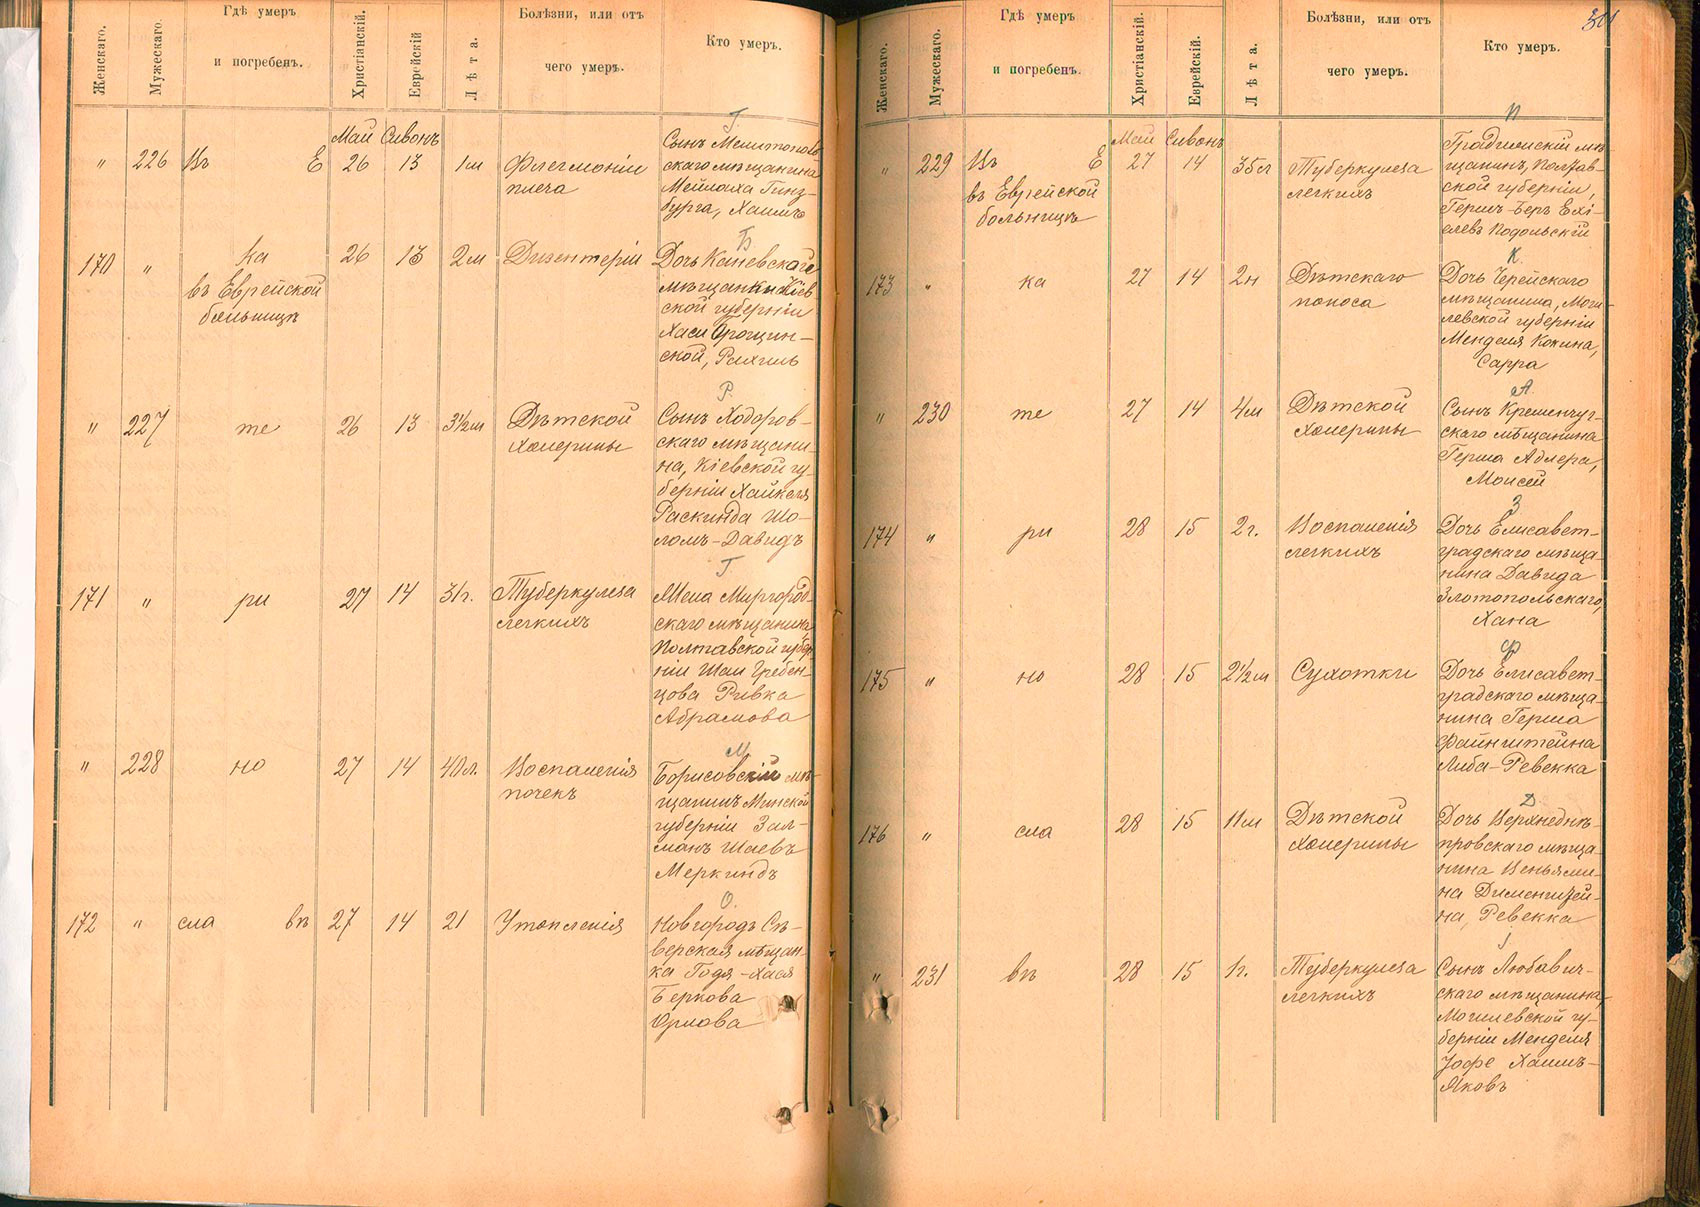 Женскаго.
Мужескаго.
Гдѣ умеръ
и погребенъ.
Христіанскій.
Еврейскій
Лѣта.
Болѣзни, или отъ
чего умеръ.
Кто умеръ.
Май Сивонъ
Г.
" 226 Въ Е 26 13 1м
Флегмоніи
плеча
Сынъ Мелитополь
скаго мѣщанина
Мейлаха Гинз-
бурга, Хаимъ
Б
170 " ка 26 13 2м Дизентеріи
въ Еврейской
больницѣ
Дочь Каневскаго
мѣщанина Кіев
ской губерніи
Хаси
ской, Рахиль
Р.
" 227 те 26 13 3½м
Дѣтской
холерины
Сынъ Ходоров-
скаго мѣщани-
на, Кіевской гу-
берніи Хайкеля
Раскинда Шо-
ломъ-Давидъ
Г
171 " ри 27 14 31г.
Туберкулеза
легкихъ
Жена Миргород-
скаго мѣщанина,
Полтавской губер-
ніи Шаи Гребен-
цова Ривка
Абрамова
М
" 228 но 27 14 40л.
Воспаленія
почекъ
Борисовскій мѣ-
щанинъ Минской
губерніи Зал-
манъ Шаевъ
Меркиндъ
О.
172 " сла въ 27 14 21 Утопленія
Новгородъ Сѣ-
верская мѣщан-
ка Годя-Хася
Беркова
Орлова
301
Женскаго.
Мужескаго.
Гдѣ умеръ
и погребенъ.
Христіанскій.
Еврейскій.
Лѣта.
Болѣзни, или отъ
чего умеръ.
Кто умеръ.
Май Сивонъ
П
" 229 Въ Е 27 14 35л
въ Еврейской
больницѣ
Туберкулеза
легкихъ
Градижскій мѣ-
щанинъ, Полтав-
ской губерніи,
Гершъ-Беръ Ехі-
елевъ Подольскій
К.
173 " ка 27 14 2н
Дѣтскаго
поноса
Дочь Черейскаго
мѣщанина, Моги-
левской губерніи
Менделя Кокина,
Сарра
А
" 230 те 27 14 4м
Дѣтской
холерины
Сынъ Кременчуг-
скаго мѣщанина
Герша Адлера,
Моисей
З
174 " ри 28 15 2г.
Воспаленія
легкихъ
Дочь Елисавет-
градскаго мѣща-
нина Давида
Злотопольскаго,
Хана
Ф
175 " но 28 15 2½м Сухотки
Дочь Елисавет-
градскаго мѣща-
нина Герша
Файнштейна
Либа-Ревекка
Д
176 " сла 28 15 11м
Дѣтской
холерины
Дочь Верхнеднѣ-
провскаго мѣща-
нина Веньями-
на
на, Ревекка
І
" 231 въ 28 15 1г.
Туберкулеза
легкихъ
Сынъ Любавич-
скаго мѣщанина,
Могилевской гу-
берніи Менделя
Іофе Хаимъ-
Яковъ